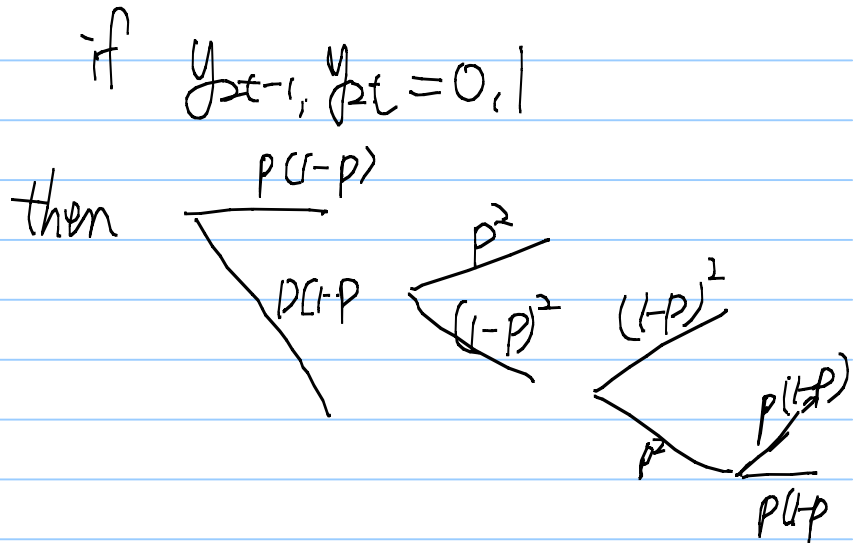 if y_{2t-1}, y_{2t} = 0, 1
then
p(1-p)
p(1-p
p^2
(1-p)^2
(1-p)^2
p^2
p(1-p)
p(1-p